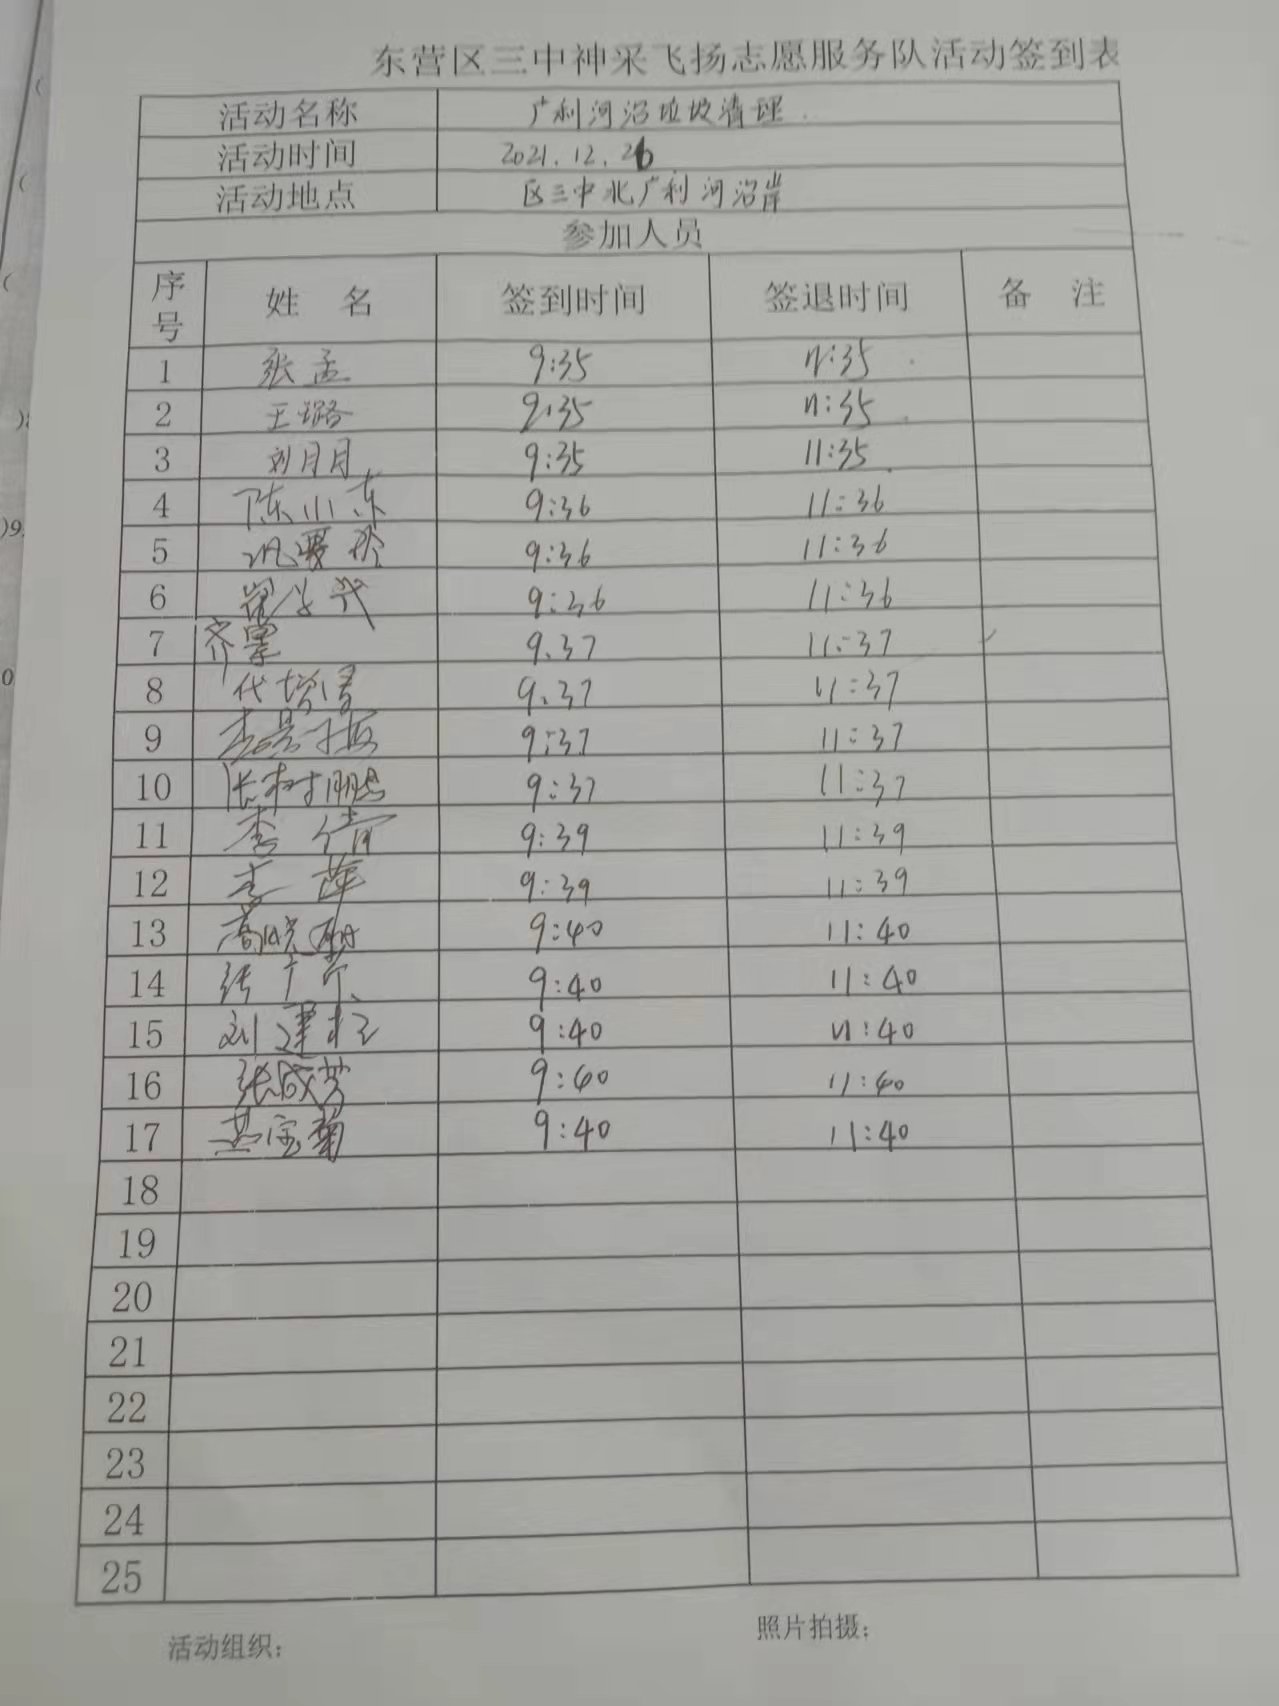 东营区三中神采飞扬志愿服务队活动签到表
活动名称 广利河沿垃圾清理
活动时间 2021.12.26
活动地点 区三中北广利河沿岸
参加人员
序号 姓 名 签到时间 签退时间 备 注
1 张孟 9:35 11:35
2 王璐 9:35 11:35
3 刘月月 9:35 11:35
4 陈小东 9:36 11:36
5 9:36 11:36
6 9:36 11:36
7 齐 9.37 11:37
8 代增 9.37 11:37
9 李 9:37 11:37
10 张树鹏 9:37 11:37
11 李倩 9:39 11:39
12 李萍 9:39 11:39
13 高晓 9:40 11:40
14 张广 9:40 11:40
15 刘建 9:40 11:40
16 张成芳 9:40 11:40
17 宝菊 9:40 11:40
18
19
20
21
22
23
24
25
活动组织： 照片拍摄：